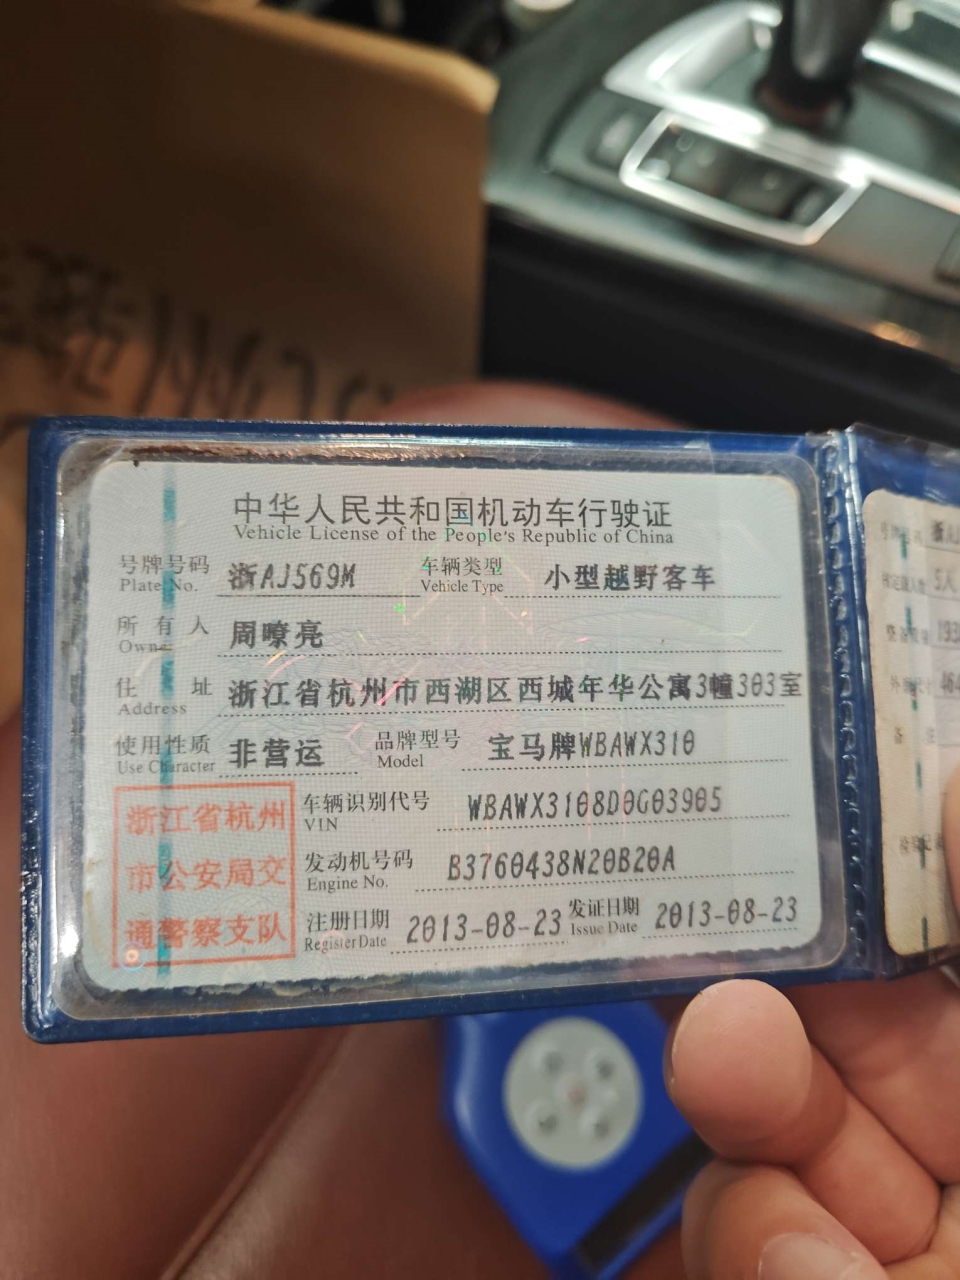 中华人民共和国机动车行驶证
Vehicle License of the People's Republic of China
号牌号码 浙AJ569M 车辆类型 小型越野客车
Plate No. Vehicle Type
所有人 周嘹亮
Owner
住址 浙江省杭州市西湖区西城年华公寓3幢303室
Address
使用性质 非营运 品牌型号 宝马牌WBAWX310
Use Character Model
浙江省杭州
市公安局交
通警察支队
车辆识别代号 WBAWX3108D0G03905
VIN
发动机号码 B3760438N20B20A
Engine No.
注册日期 2013-08-23 发证日期 2013-08-23
Register Date Issue Date
5人